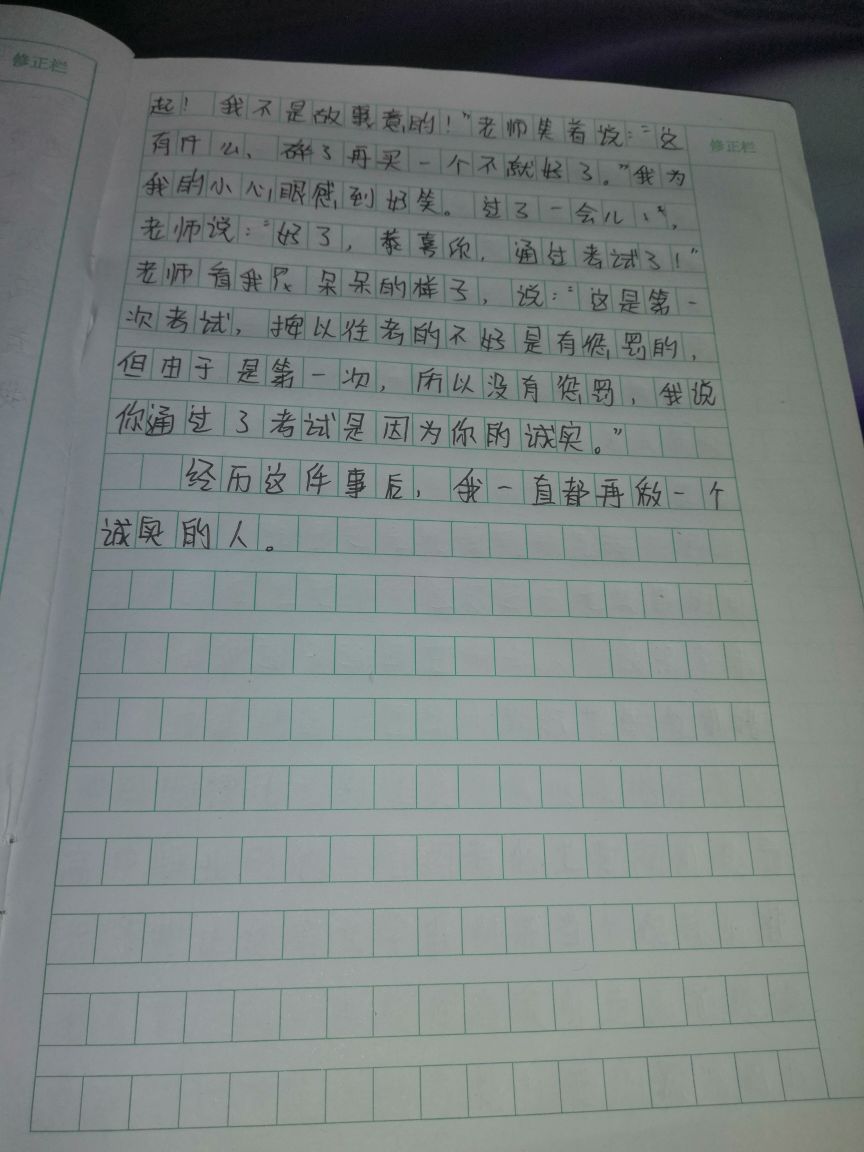 修正栏
修正栏
起！我不是故事意的！”老师笑着说：“这
有什么、碎了再买一个不就好了。”我为
我的小心眼感到好笑。过了一会儿，
老师说：“好了，恭喜你，通过考试了！”
老师看我呆呆的样子，说：“这是第一
次考试，按以往考的不好是有惩罚的，
但由于是第一次，所以没有惩罚，我说
你通过了考试是因为你的诚实。”
经历这件事后，我一直都再做一个
诚实的人。